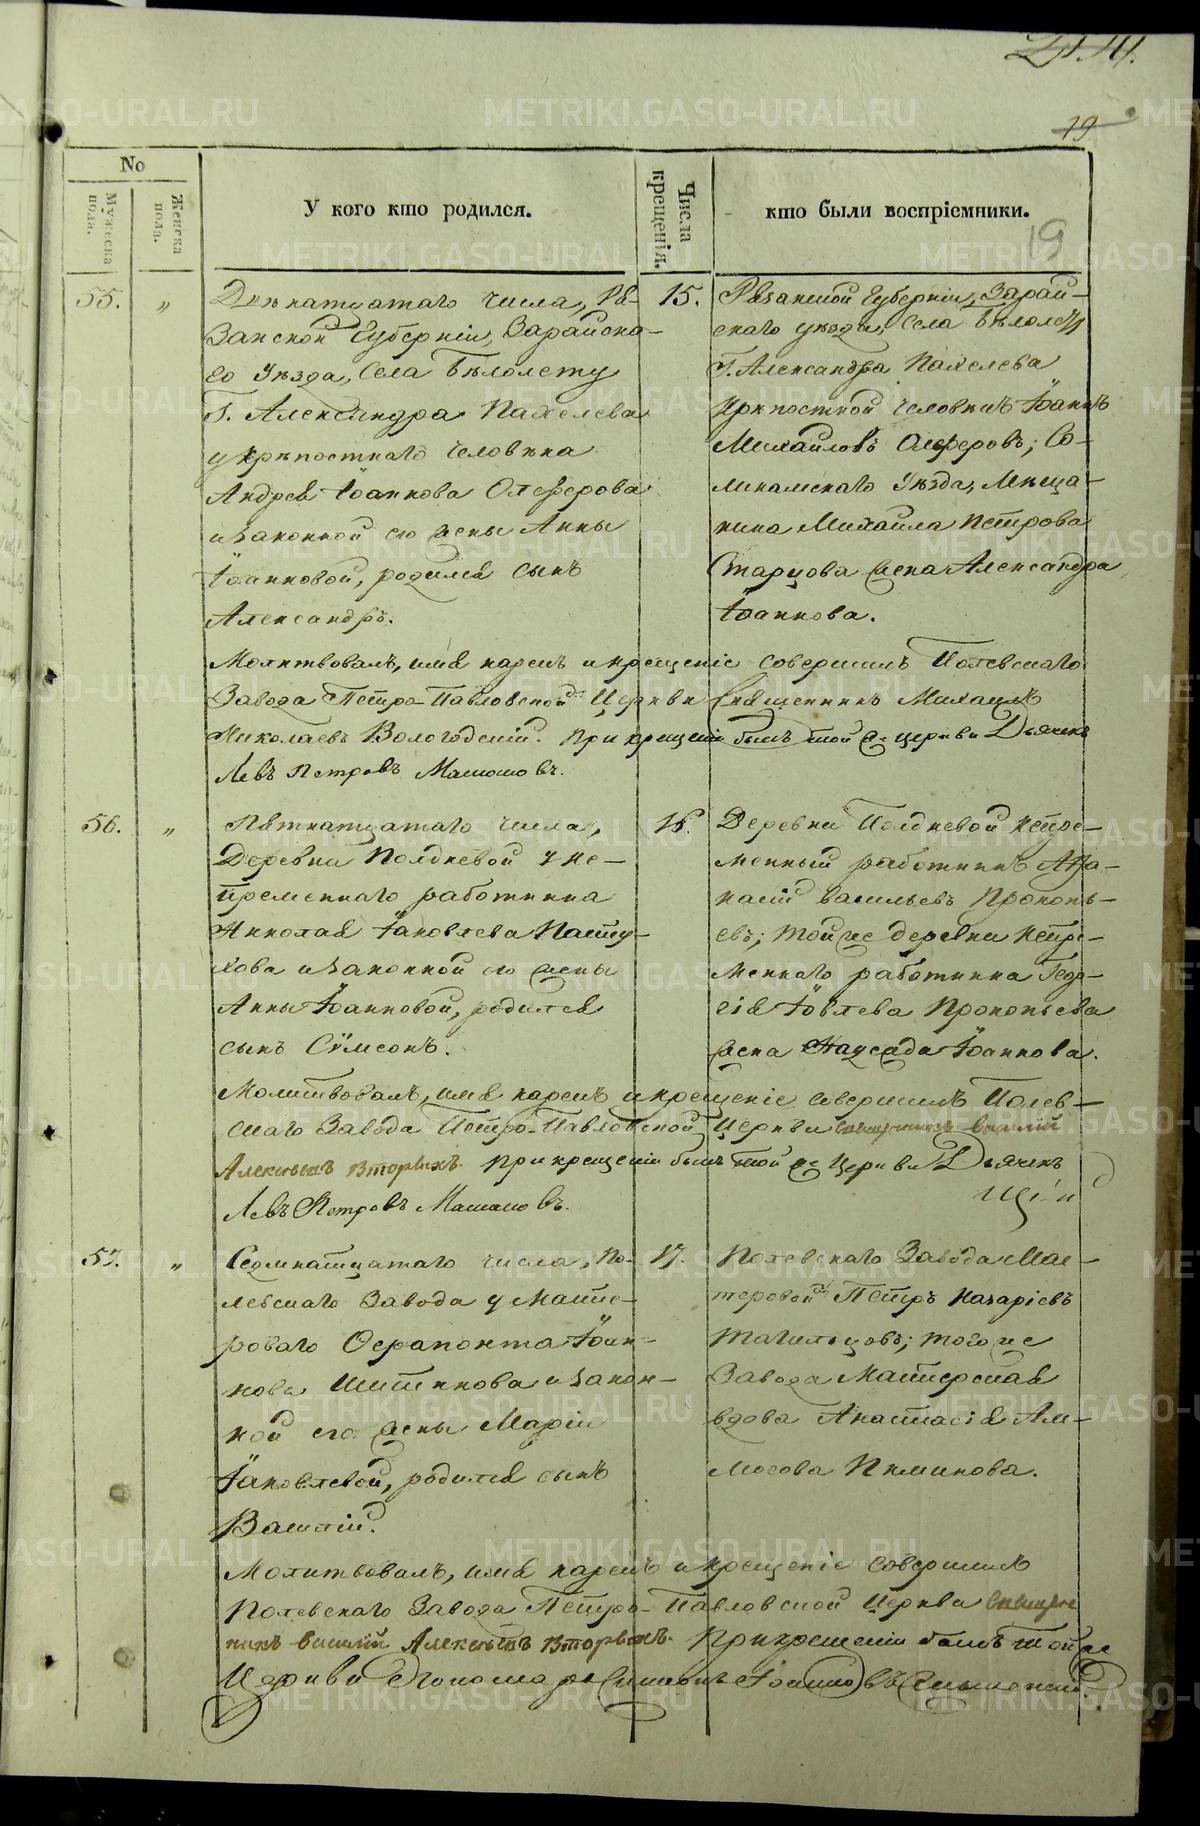 19
19
No
Мужеска пола.
Женска пола.
У кого кто родился.
Числа крещенія.
кто были воспріемники.
55. „
Двенатцатаго числа, Ря-
занской Губерніи, Зарайска-
го Уѣзда, Села Бѣлолету
Г. Александра Пахелева
у крѣпостнаго человѣка
Андрея Іоаннова Олферова
и законной его жены Анны
Іоанновой, родился сынъ
Александръ.
15.
Рязанской Губерніи, Зарай-
скаго уѣзда, Села
Г. Александра Пахелева
крѣпостной человѣкъ Іоаннъ
Михайловъ Олферовъ; Со-
ликамскаго Уѣзда, Меща-
нина Михаила Петрова
Старцова жена Александра
Іоаннова.
Молитвовалъ, имя нарекъ и крещеніе совершилъ Полевскаго
Завода Петро-Павловской Церкви Священникъ Михаилъ
Николаевъ Вологодскій. При крещеніи былъ той же церкви Дьячекъ
Левъ Петровъ
56. „
Пятнатцатаго числа,
Деревни Полдневой у не-
премѣннаго работника
Николая Іаковлева Пасту-
хова и законной его жены
Анны Іоанновой, родился
сынъ Сѵмеонъ.
16.
Деревни Полдневой непре-
менный работникъ Афа-
насій Васильевъ Прокопь-
евъ; той же деревни непре-
меннаго работника Геор-
гія Іовлева Прокопьева
жена Іоаннова.
Молитвовалъ, имя нарекъ и крещеніе совершилъ Полев-
скаго Завода Петро-Павловской Церкви священникъ Василій
Алексѣевъ Вторыхъ. При крещеніи былъ той же Церкви Дьячекъ
Левъ Петровъ
57. „
Седмнатцатаго числа, По-
левскаго Завода у Масте-
роваго Ферапонта Іоан-
нова Шитикова и закон-
ной его жены Маріи
Іаковлевой, родился сынъ
Василій.
17.
Полевскаго Завода Мас-
теровой Петръ Назаріевъ
Тагильцовъ; того же
Завода Мастерская
вдова Анастасія Ам-
мосова Пкминова.
Молитвовалъ, имя нарекъ и крещеніе совершилъ
Полевскаго Завода Петро-Павловской Церкви священ
никъ Василій Алексѣевъ Вторыхъ. При крещеніи былъ той же
Церкви Пономарь Симеонъ
METRIKI.GASO-URAL.RU